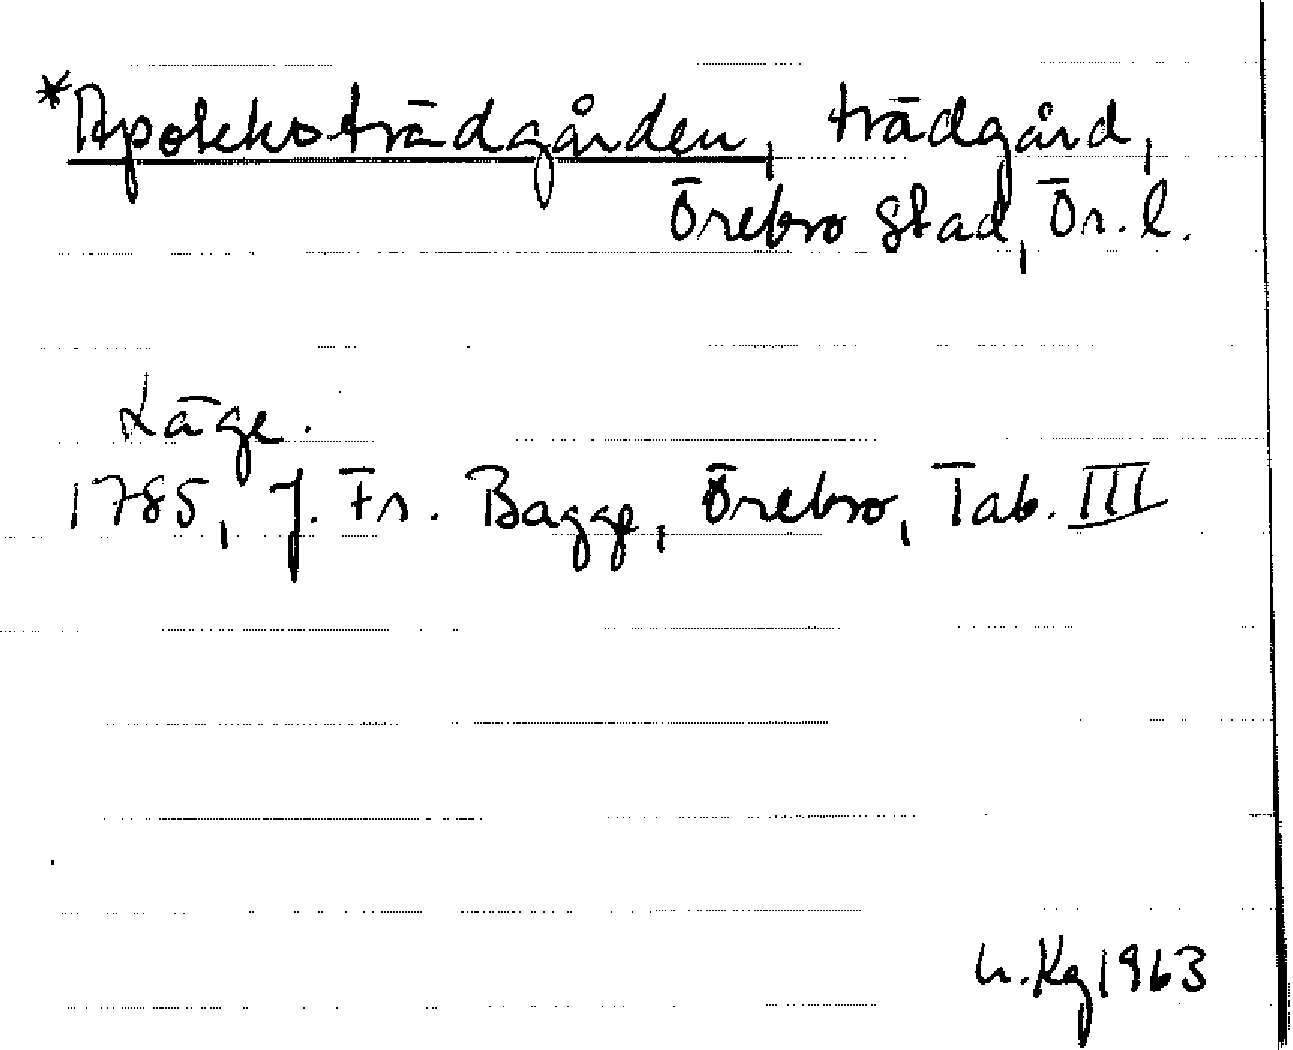 *Apoteksträdgården, trädgård,
Örebro stad, Ör. l.
Läge.
1785, J. Fr. Bagge, Örebro, Tab. III
h. Kg 1963